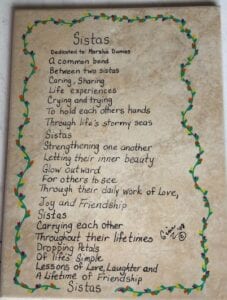 Sistas
Dedicated to Marsha Dumas
A common bond
Between two sistas
Caring, Sharing
Life experiences
Crying and trying
To hold each others hands
Through life's stormy seas
Sistas
Strengthening one another
Letting their inner beauty
Glow outward
For others to see
Through their daily work of Love,
Joy and Friendship
Sistas
Carrying each other
Throughout their lifetimes
Dropping Petals
Of life's Simple
Lessons of Love, Laughter and
A Lifetime of Friendship
Sistas